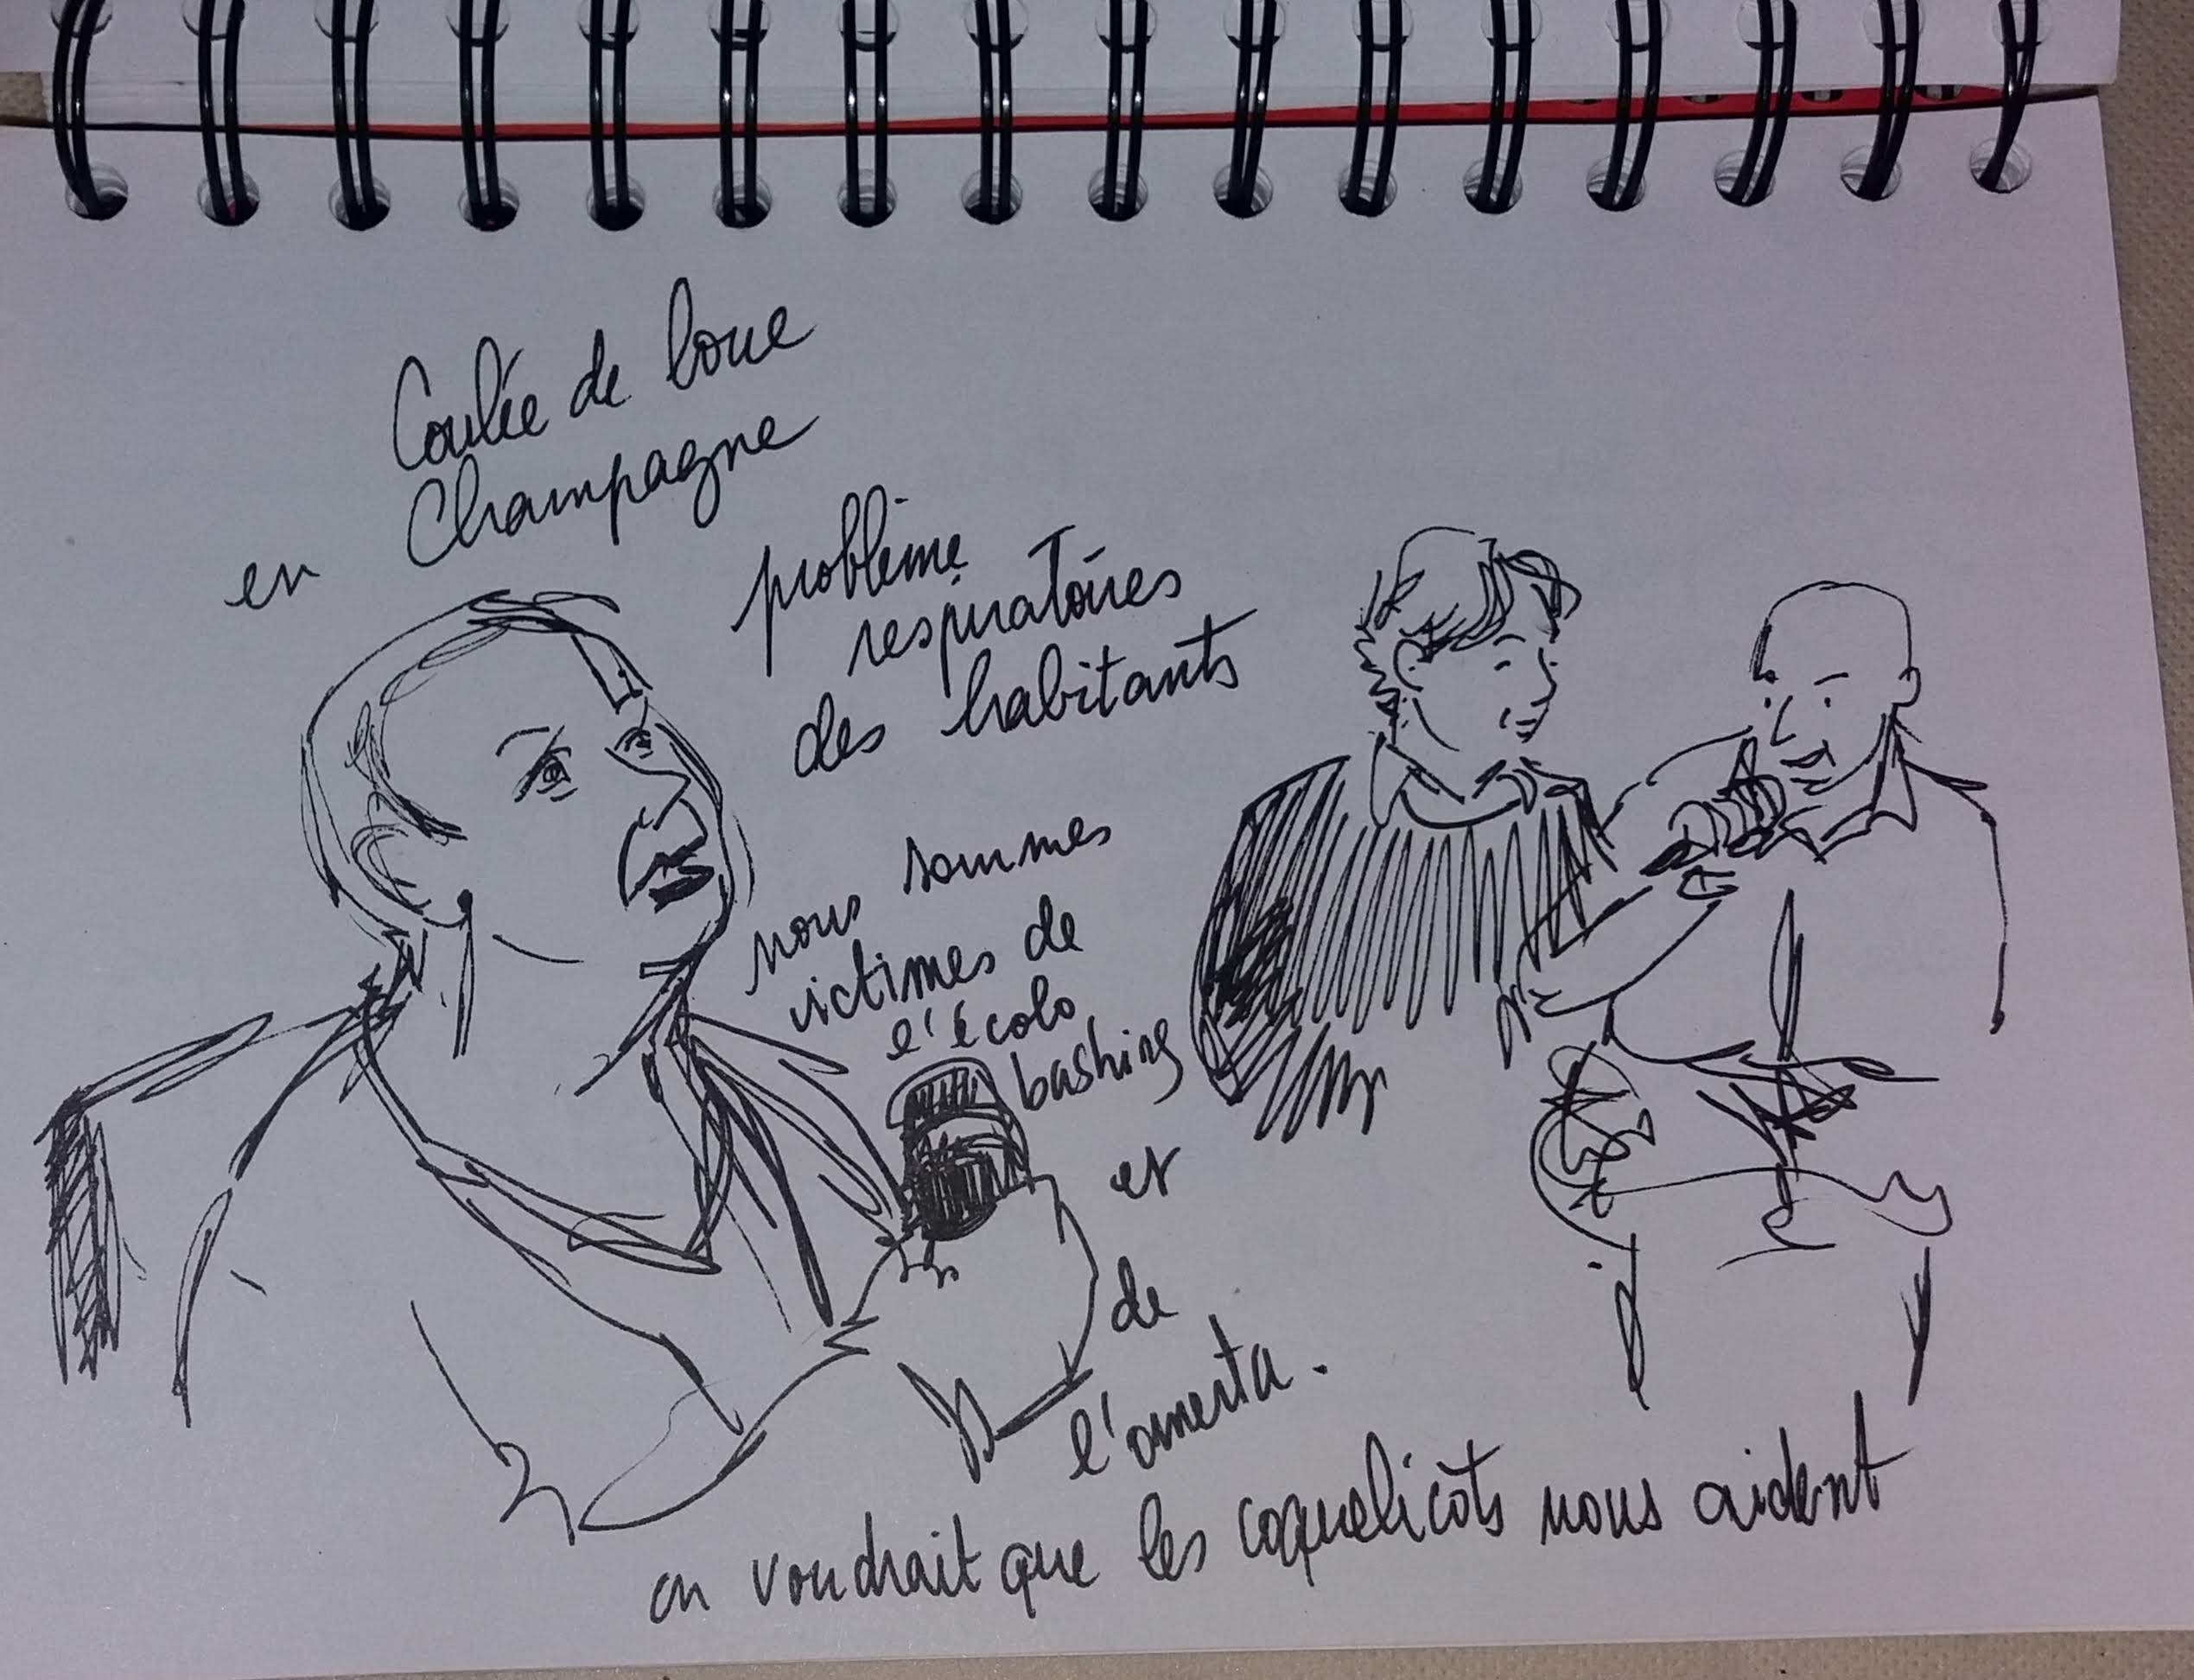 Coulée de boue
en Champagne
problème
respiratoires
des habitants
nous sommes
victimes de
l'écolo
bashing
et
de
l'omerta.
on voudrait que les coquelicots nous aident